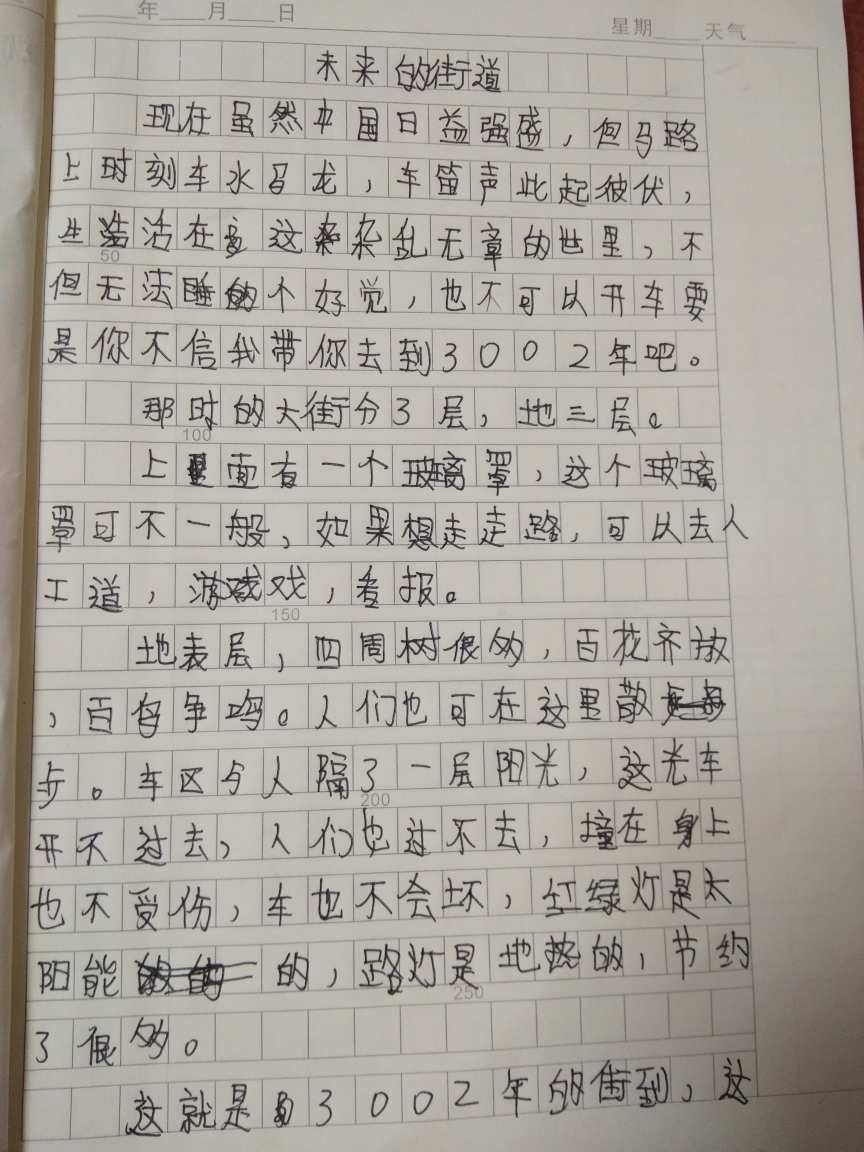 年 月 日
星期 天气
未来的街道
现在虽然中国日益强盛，但马路
上时刻车水马龙，车笛声此起彼伏，
生活在这杂乱无章的世里，不
50
但无法睡个好觉，也不可以开车要
是你不信我带你去到3002年吧。
那时的大街分3层，地三层。
100
上面有一个玻璃罩，这个玻璃
罩可不一般，如果想走走路，可以去人
工道，游戏，看报。
150
地表层，四周树很多，百花齐放
，百鸟争鸣。人们也可在这里散
步。车区与人隔了一层阳光，这光车
200
开不过去，人们也过不去，撞在身上
也不受伤，车也不会坏，红绿灯是太
阳能的，路灯是地热的，节约
250
了很多。
这就是3002年的街到，这